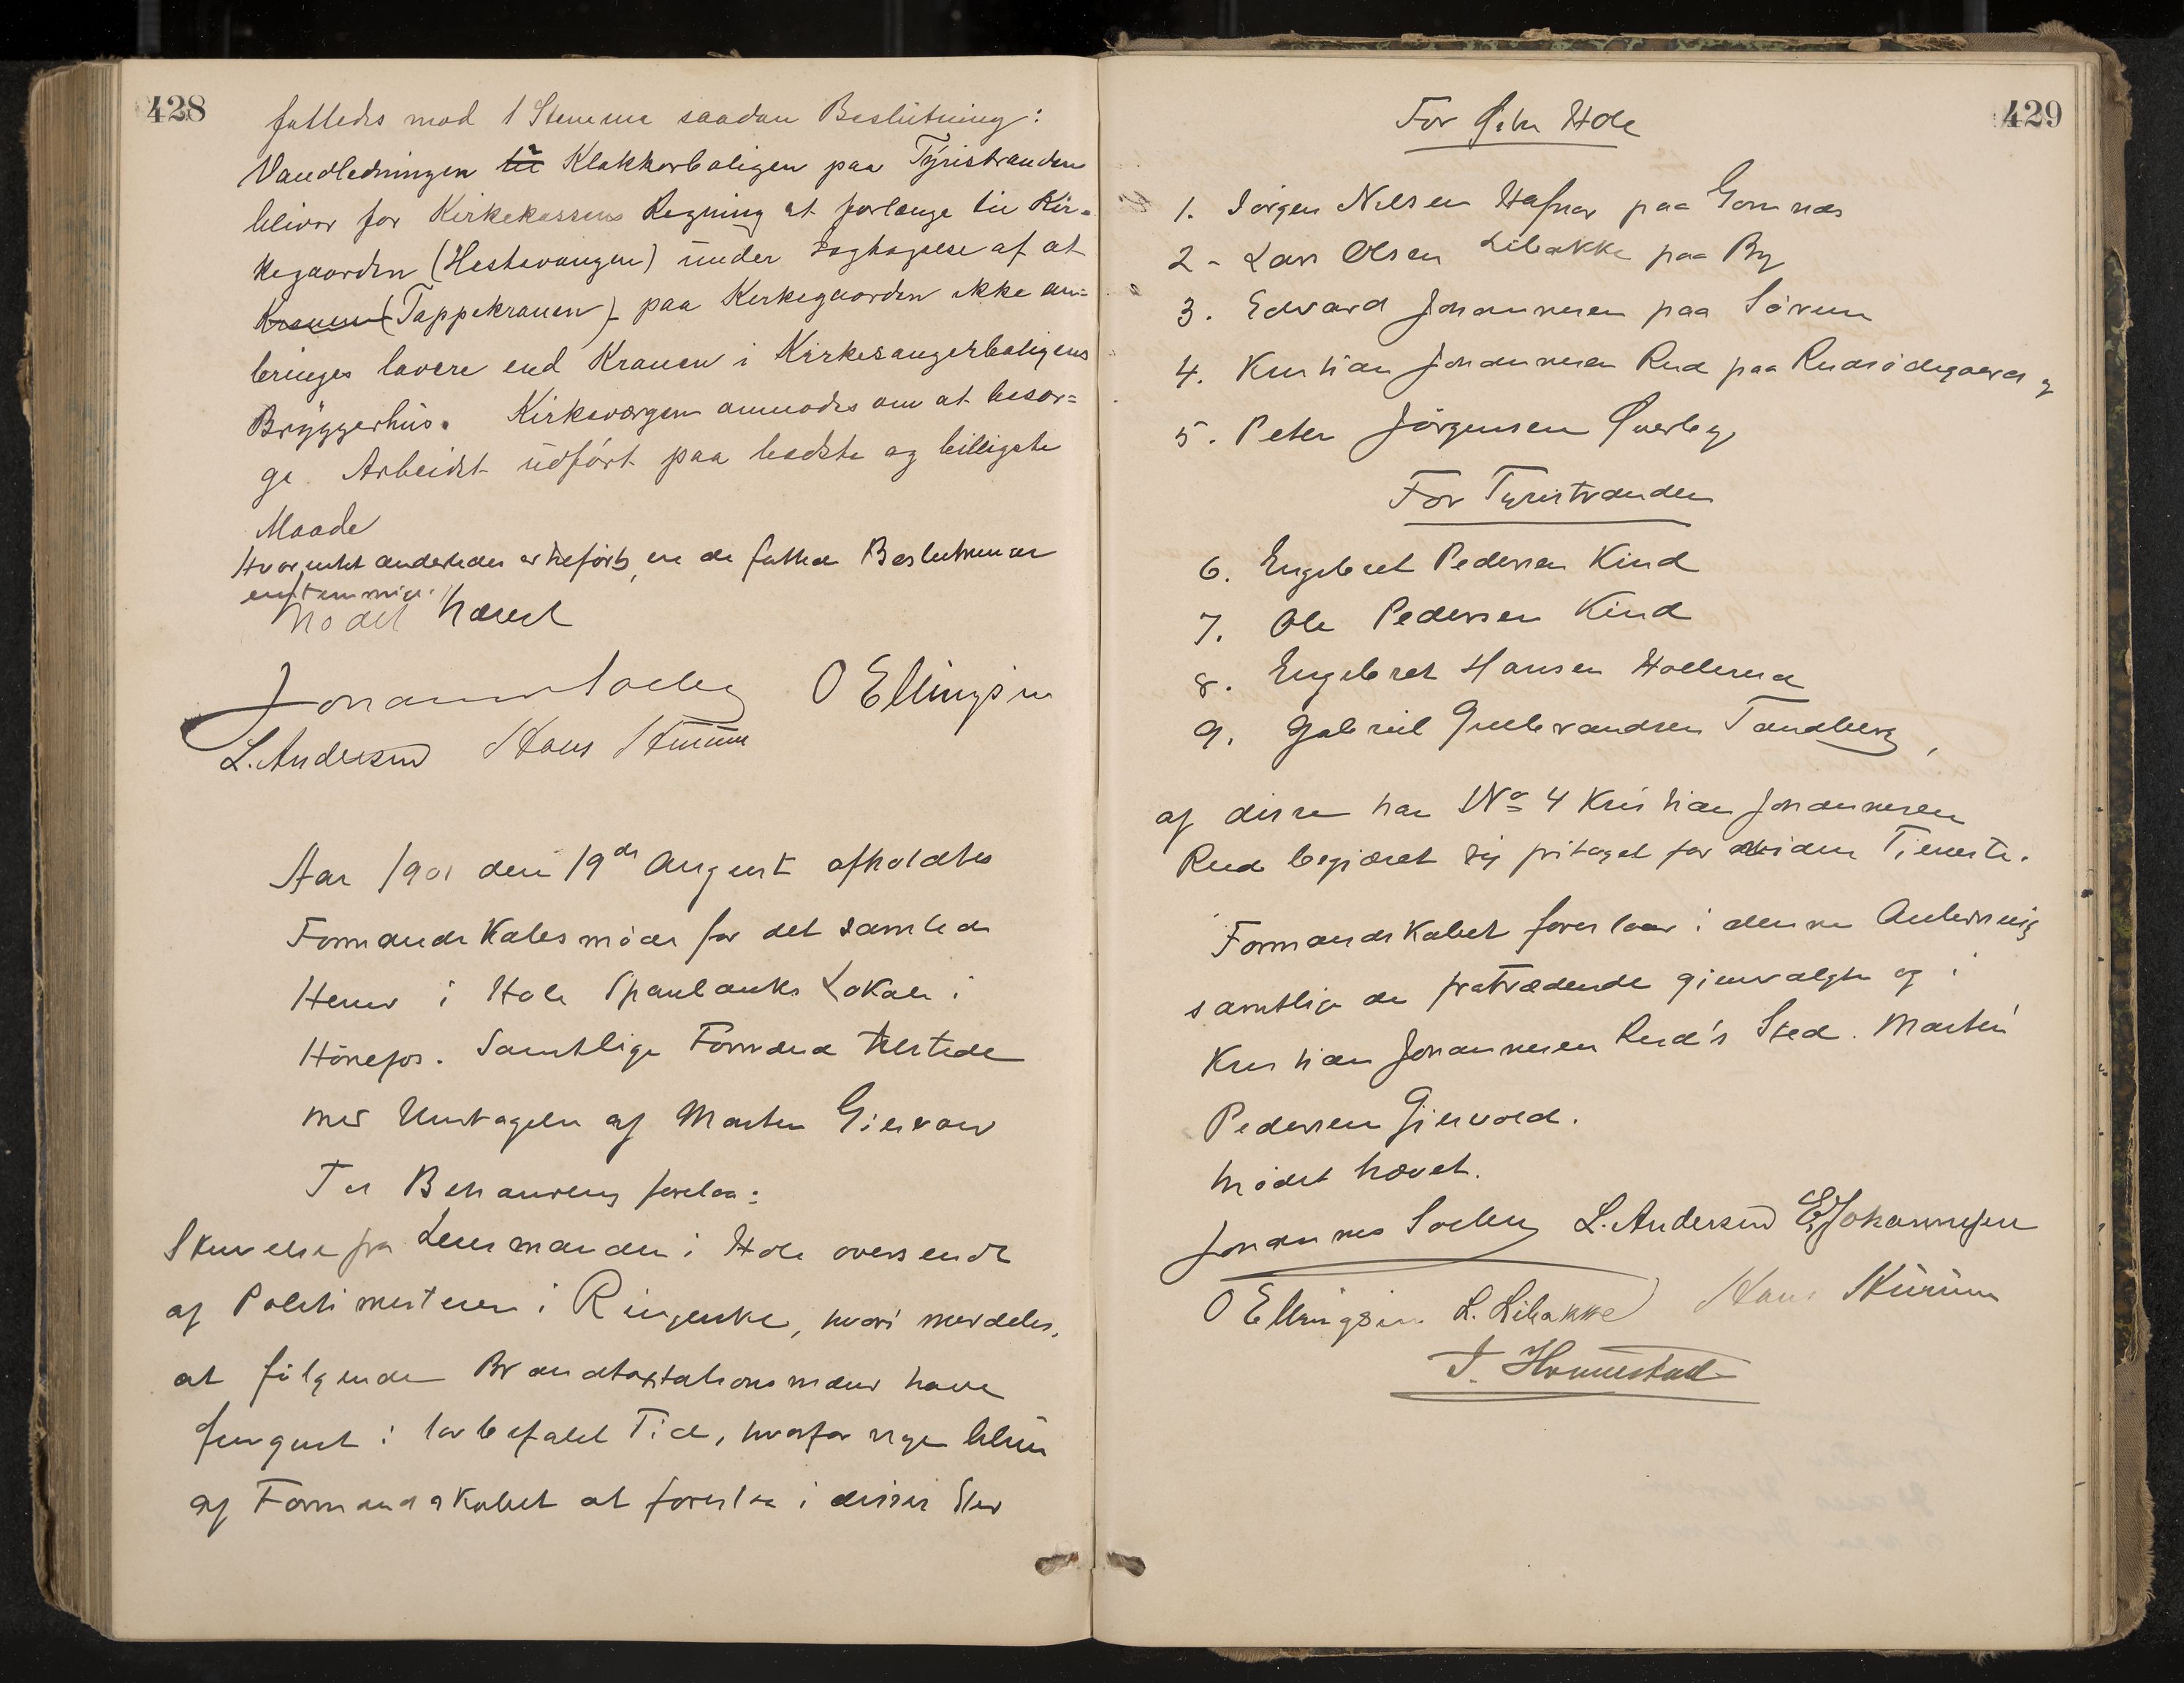 428
fattedes mod 1 Stemme saadan Beslutning:
Vandledningen til Klokkerboligen paa Tyristranden
bliver for Kirkekassens Regning at forlænge til Kir-
kegaarden (Hestevangen) under Iagtagelse af at
Kranen (Tappekranen) paa Kirkegaarden ikke an-
bringes lavere end Kranen i Kirkesangerboligens
Bryggerhus. Kirkeværgen anmodes om at besør-
ge Arbeidet udført paa bedste og billigste
Maade
Hvor intet anderledes er tilført, er de fattede Beslutninger
enstemmige.
Mødet hævet
Johannes Solberg O Ellingsen
L. Andersen Hans
Aar 1901 den 19de August afholdtes
Formandskabsmøde for det samlede
Herred i Hole Sparbanks Lokale i
Hönefos. Samtlige Formænd tilstede
med Undtagelse af Martin Gjesvold
Til Behandling forelaa:
Skrivelse fra Lensmanden i Hole oversendt
af Politimesteren i Ringerike, hvori meddeles,
at følgende Brandtaxtationsmænd have
fungeret i lovbefalet Tid, hvorfor nye bliver
af Formandskabet at foreslaa i disses Sted
429
For Hole
1. Jörgen Nilsen Hafnor paa Gomnæs
2 - Lars Olsen Libakke paa By
3. Edvard Johannesen paa Sörum
4. Kristian Johannesen Rud paa Rudsödegaard og
5. Peter Jörgensen Överby
For Tyristranden
6. Engebret Pedersen Kind
7. Ole Pedersen Kind
8. Engebret Hansen Hollerud
9. Gabriel Gulbrandsen Tandberg,
af disse har No 4 Kristian Johannesen
Rud begjæret sig fritaget for videre Tieneste.
Formandskabet foreslaar i denne Anledning
samtlige de fratrædende gjenvalgte og i
Kristian Johannesen Rud's Sted. Martin
Pedersen Gjesvold.
Mödet hævet.
Johannes Solberg L. Andersen E. Johannesen
O Ellingsen L. Libakke Hans